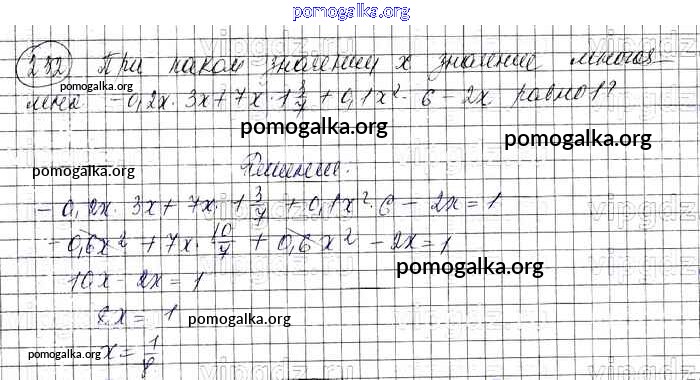 pomogalka.org
232 При каком значении x значение многоч-
лена -0,2x · 3x + 7x · 1 3/7 + 0,1x² · 6 - 2x равно 1?
pomogalka.org
pomogalka.org
pomogalka.org
pomogalka.org
Решение:
-0,2x · 3x + 7x · 1 3/7 + 0,1x² · 6 - 2x = 1
-0,6x² + 7x · 10/7 + 0,6x² - 2x = 1
10x - 2x = 1
pomogalka.org
8x = 1
pomogalka.org
pomogalka.org
x = 1/8